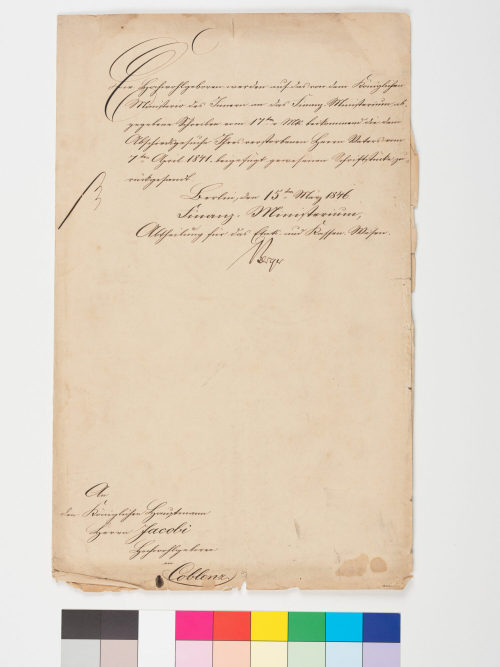 Euer Hochwohlgeboren werden auf das von dem Königlichen
Ministerio des Innern an das Finanz-Ministerium ab-
gegebene Schreiben vom 17ten v. Mts. beikommend die dem
Abschiedsgesuche Ihres verstorbenen Herrn Vaters vom
7ten April 1841. beigefügt gewesenen Schriftstücke zu-
rückgesandt.
Berlin, den 15ten März 1846.
Finanz-Ministerium,
Abtheilung für das Etats- und Kassen-Wesen.
An
den Königlichen Hauptmann
Herrn Jacobi
Hochwohlgeboren
in
Coblenz